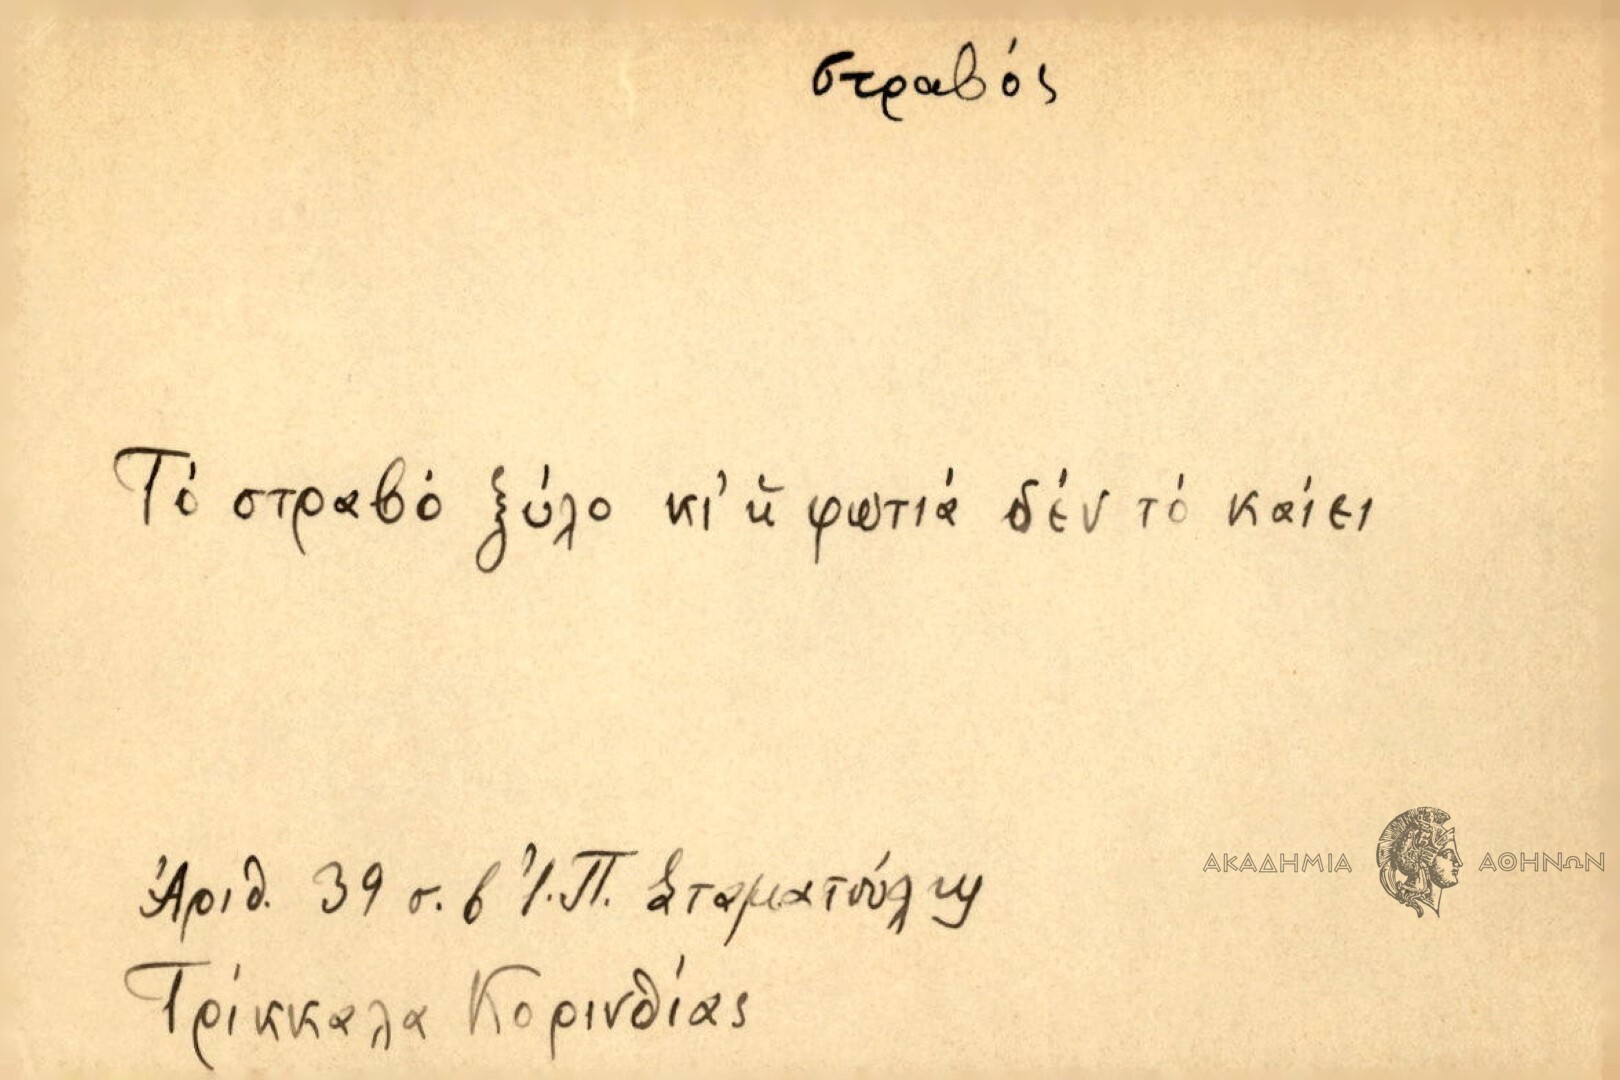 στραβός
Τό στραβό ξύλο κι' ἡ φωτιά δέν τό καίει
ΑΚΑΔΗΜΙΑ ΑΘΗΝΩΝ
Ἀριθ. 39 σ. β Ἰ. Π. Σταματούλης
Τρίκκαλα Κορινθίας